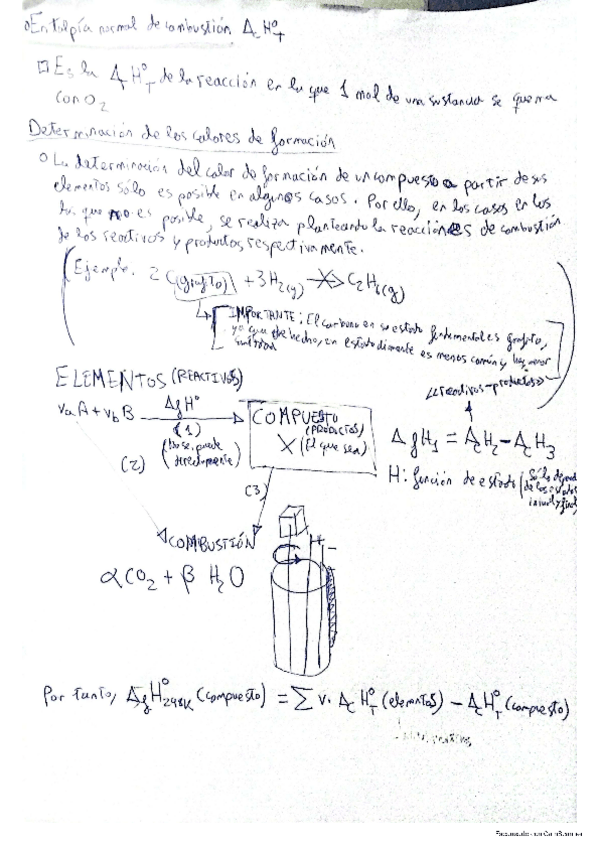 Entalpía normal de combustión ΔcH°T
Es la ΔcH°T de la reacción en la que 1 mol de una sustancia se quema
con O2
Determinación de los calores de formación
La determinación del calor de formación de un compuesto a partir de sus
elementos sólo es posible en algunos casos. Por ello, en los casos en los
que no es posible, se realiza planteando la reacciónes de combustión
de los reactivos y productos respectivamente.
Ejemplo. 2 C(grafito) + 3H2(g) → C2H6(g)
IMPORTANTE: El carbono en su estado fundamental es grafito,
ya que de hecho, en estado diamante es menos común y hay menor
ELEMENTOS (REACTIVOS)
«reactivos-productos»
νaA + νbB ΔfH° (1) COMPUESTO
(PRODUCTOS)
X (El que sea)
(No se puede
directamente)
(2)
ΔfH1 = ΔcH2 - ΔcH3
H: función de estado (Sólo depende
de los estados
inicial y final)
(3)
COMBUSTIÓN
+ -
αCO2 + β H2O
Por tanto, ΔfH°298K (compuesto) = Σ ν · ΔcH°T (elementos) - ΔcH°T (compuesto)